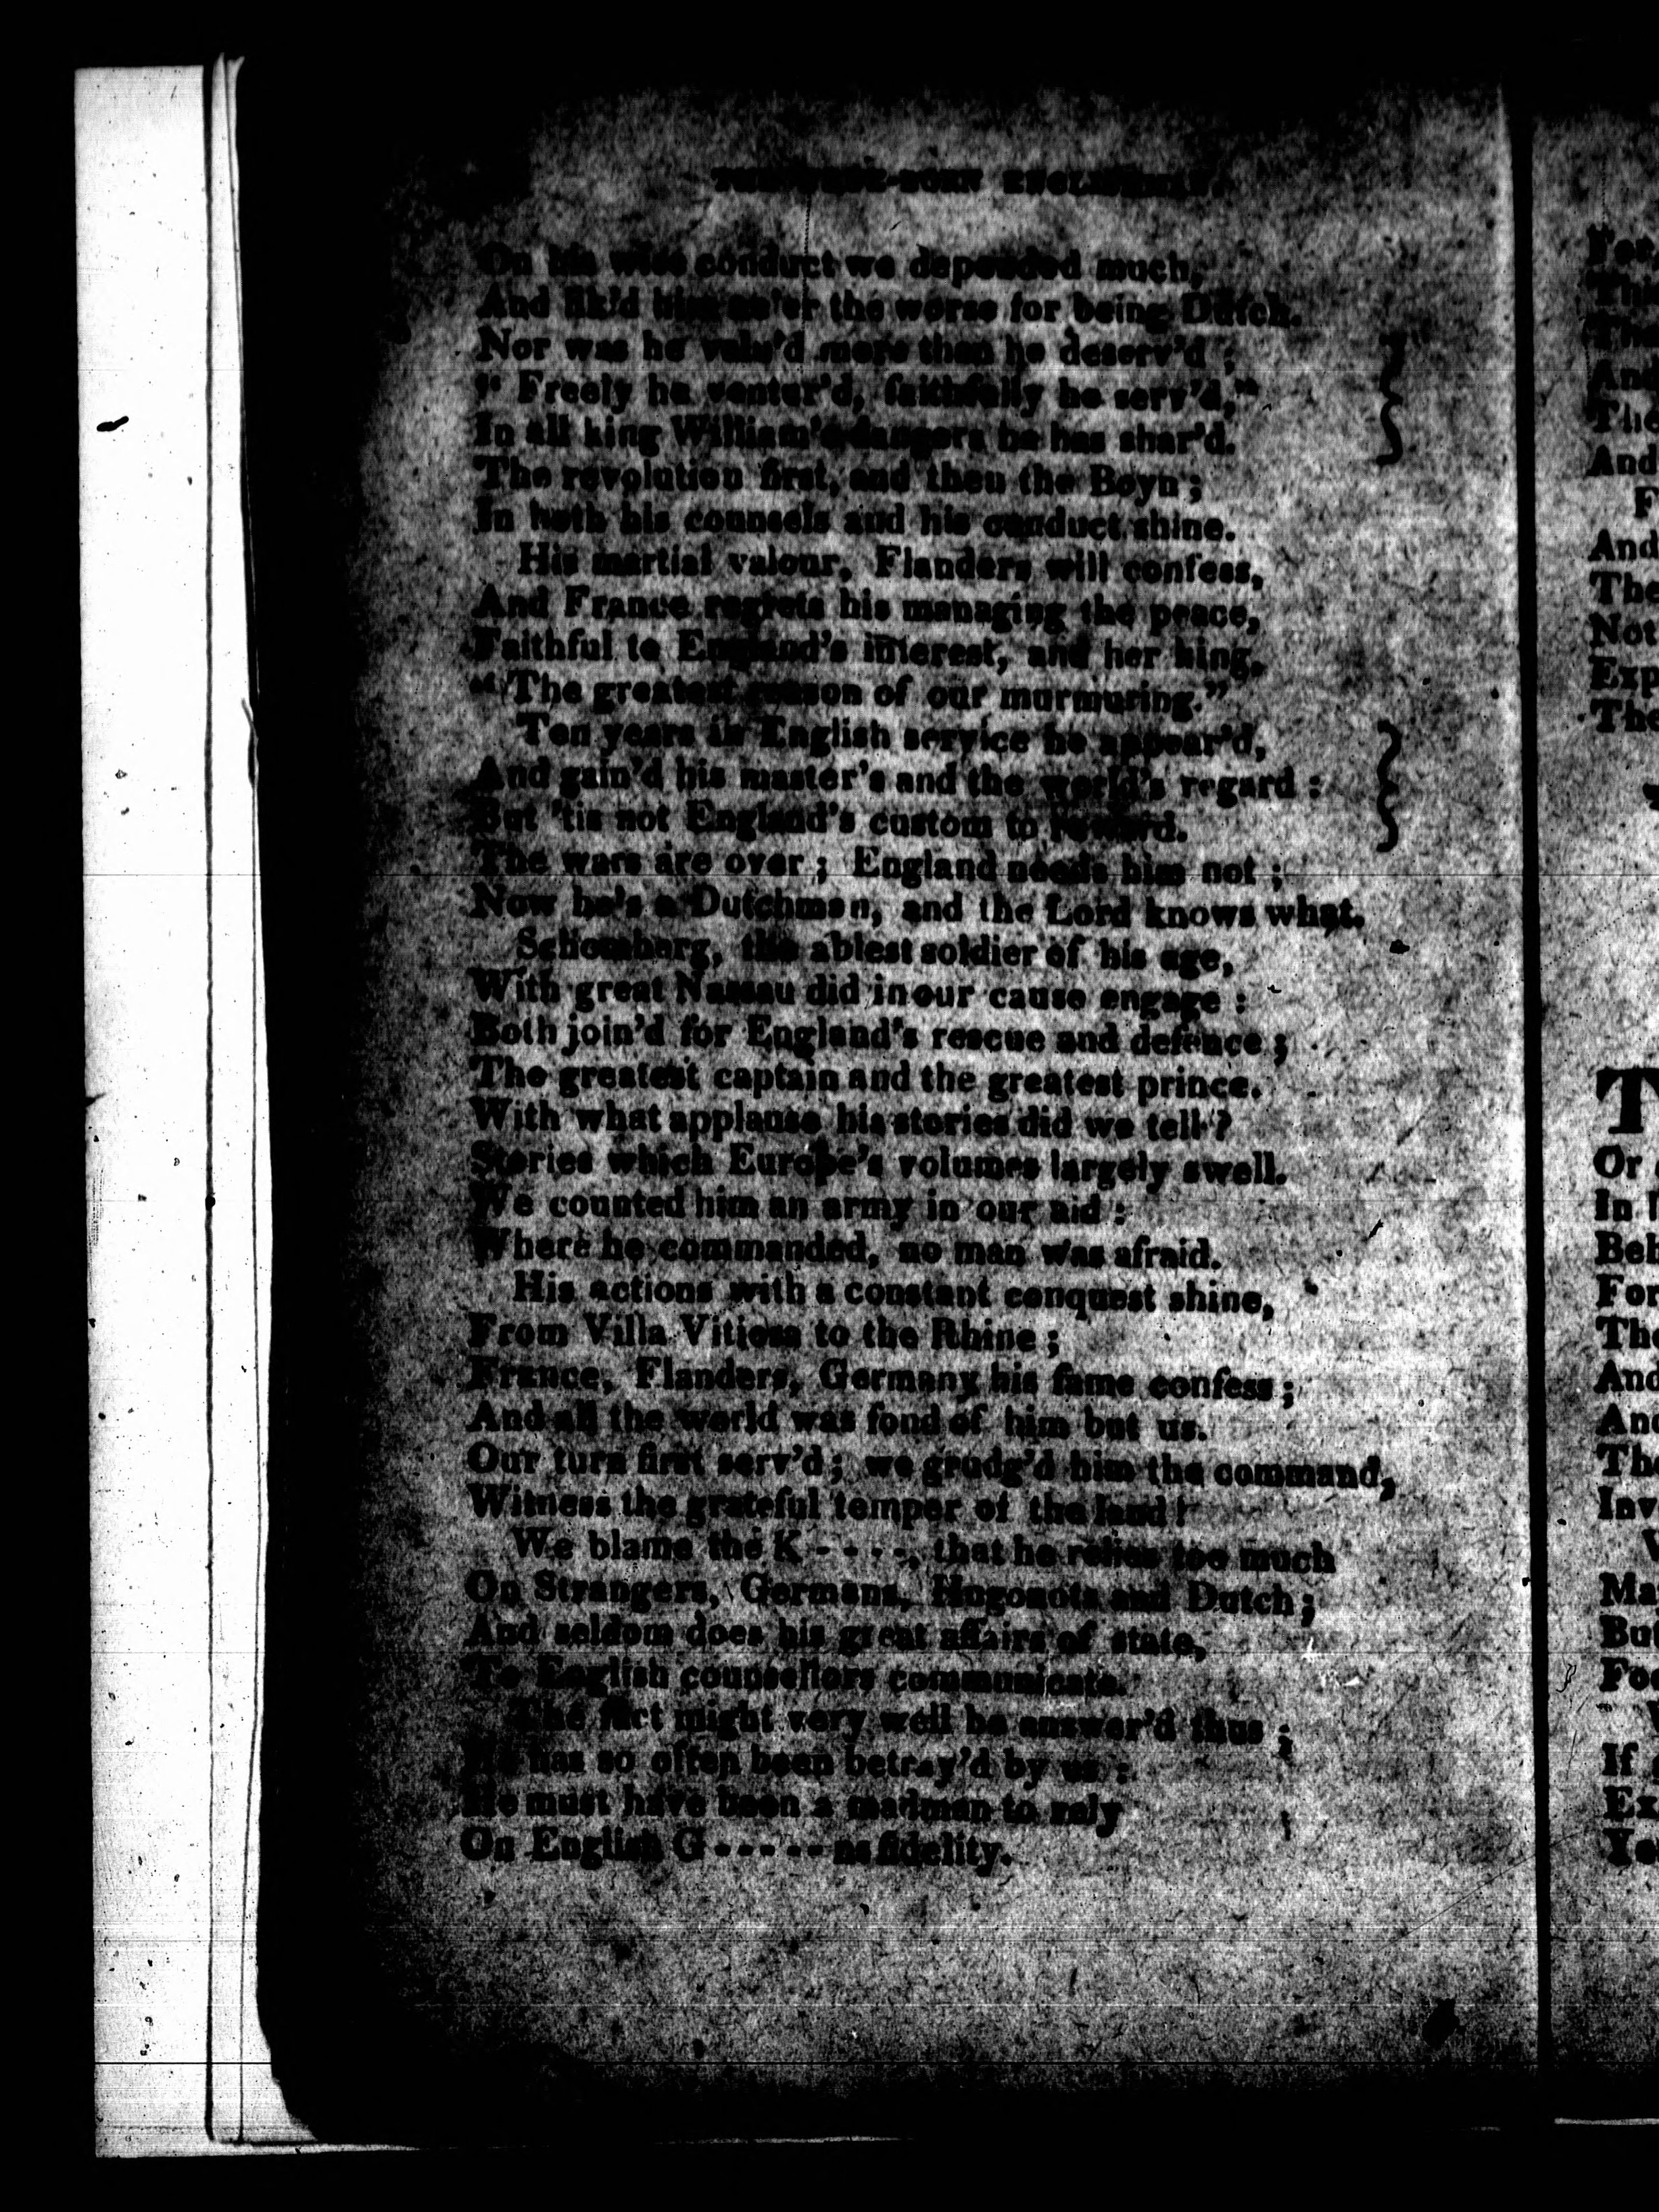 THE TRUE-BORN ENGLISHMAN.
On his wise conduct we depended much,
And lik'd him ne'er the worse for being Dutch.
Nor was he valu'd more than he deserv'd ;
" Freely he ventur'd, faithfully he serv'd,"
In all king William's dangers he has shar'd.
The revolution first, and then the Boyn ;
In both his counsels and his conduct shine.
His martial valour, Flanders will confess,
And France regrets his managing the peace,
Faithful to England's interest, and her king,
" The greatest reason of our murmuring."
Ten years in English service he appear'd,
And gain'd his master's and the world's regard :
But 'tis not England's custom to reward.
The wars are over ; England needs him not ;
Now he's a Dutchman, and the Lord knows what.
Schomberg, the ablest soldier of his age,
With great Nassau did in our cause engage :
Both join'd for England's rescue and defence ;
The greatest captain and the greatest prince.
With what applause his stories did we tell ?
Stories which Europe's volumes largely swell.
We counted him an army in our aid :
Where he commanded, no man was afraid.
His actions with a constant conquest shine,
From Villa Vitiosa to the Rhine ;
France, Flanders, Germany his fame confess ;
And all the world was fond of him but us.
Our turn first serv'd ; we grudg'd him the command,
Witness the grateful temper of the land !
We blame the K - - - -, that he relies too much
On Strangers, Germans, Hugonots and Dutch ;
And seldom does his great affairs of state,
To English counsellors communicate.
The fact might very well be answer'd thus ;
He has so often been betray'd by us :
He must have been a madman to rely
On English G - - - - - ns fidelity.
And
F
And
The
Not
Exp
The
T
Or
In
Beh
For
The
And
And
The
Inv
Ma
But
Foo
If
Ex